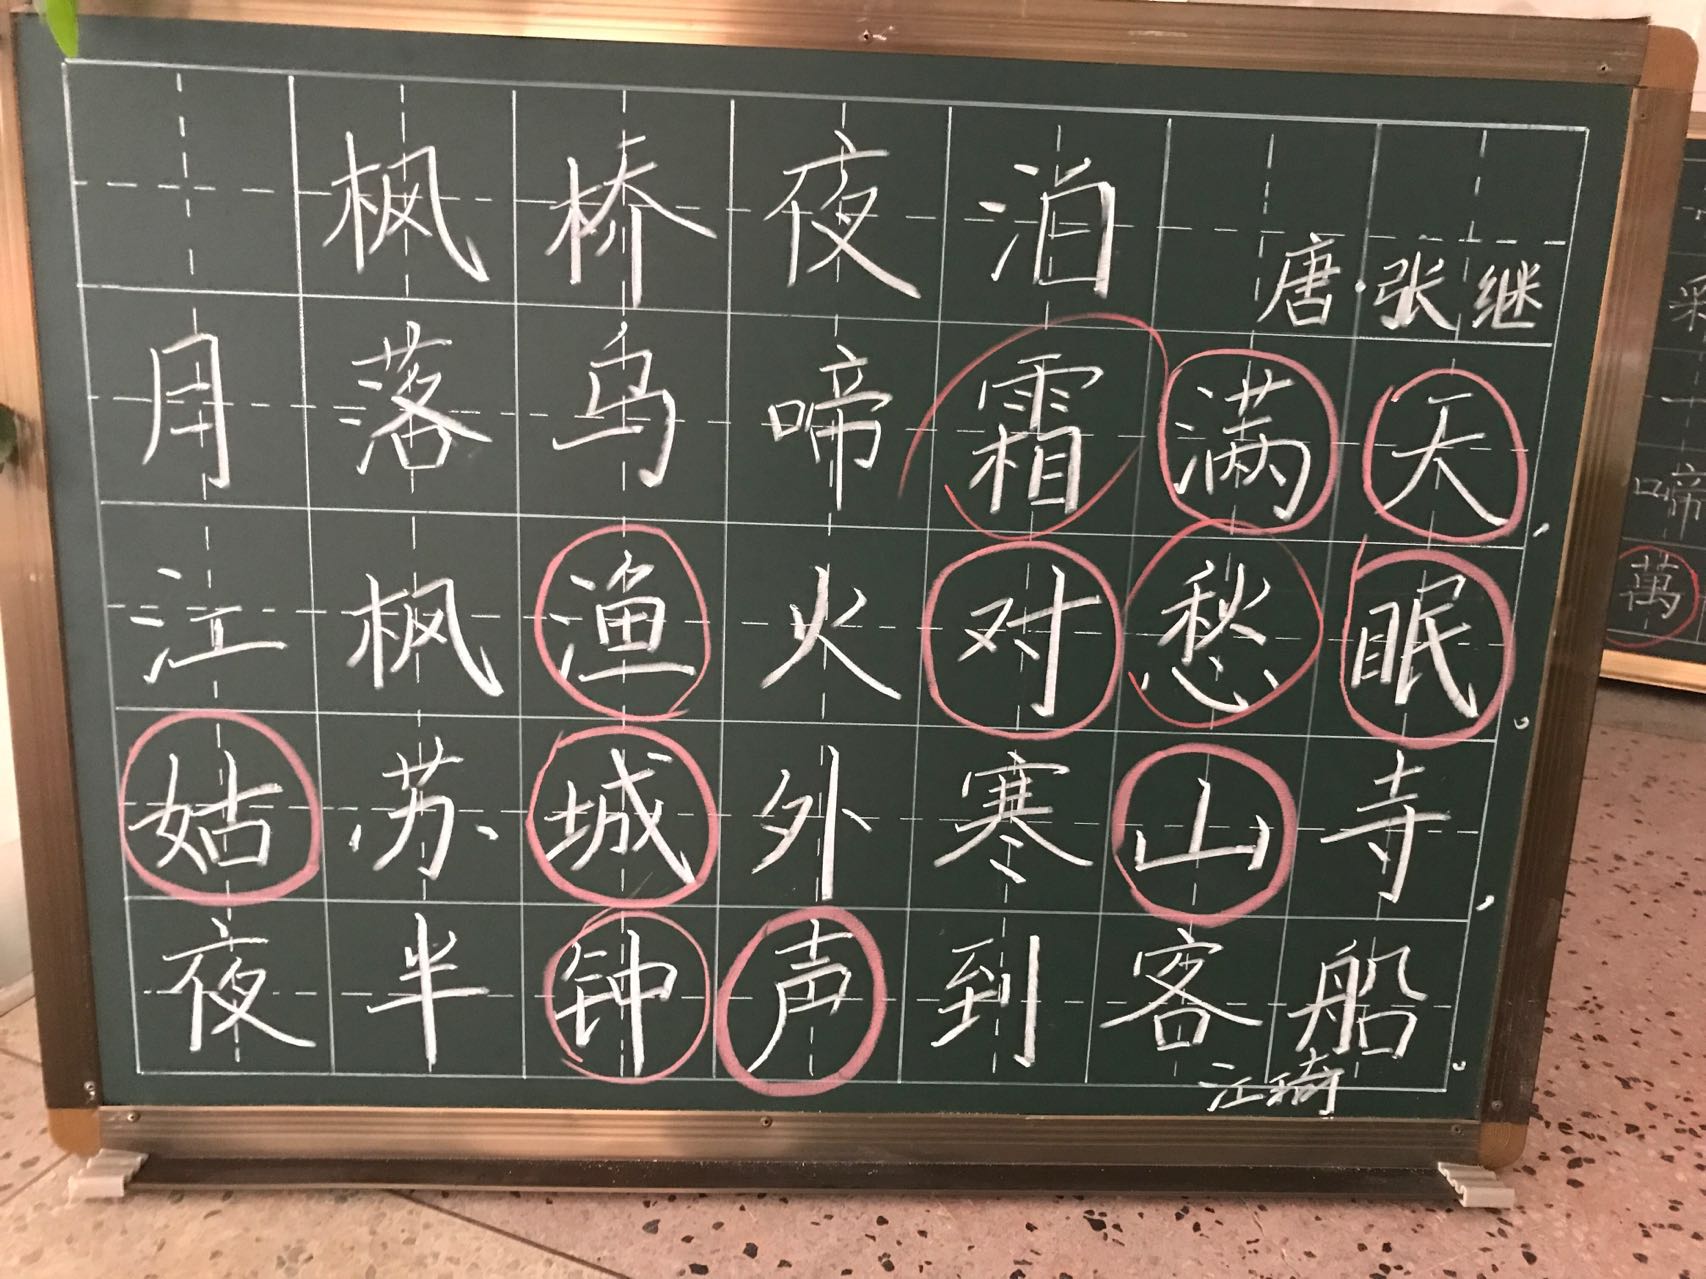 枫桥夜泊
唐·张继
月落乌啼霜满天,
江枫渔火对愁眠。
姑苏城外寒山寺,
夜半钟声到客船。
江琦
啼
萬